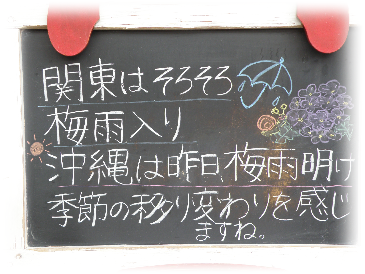 関東はそろそろ
梅雨入り
沖縄は昨日、梅雨明け
季節の移り変わりを感じ
ますね。